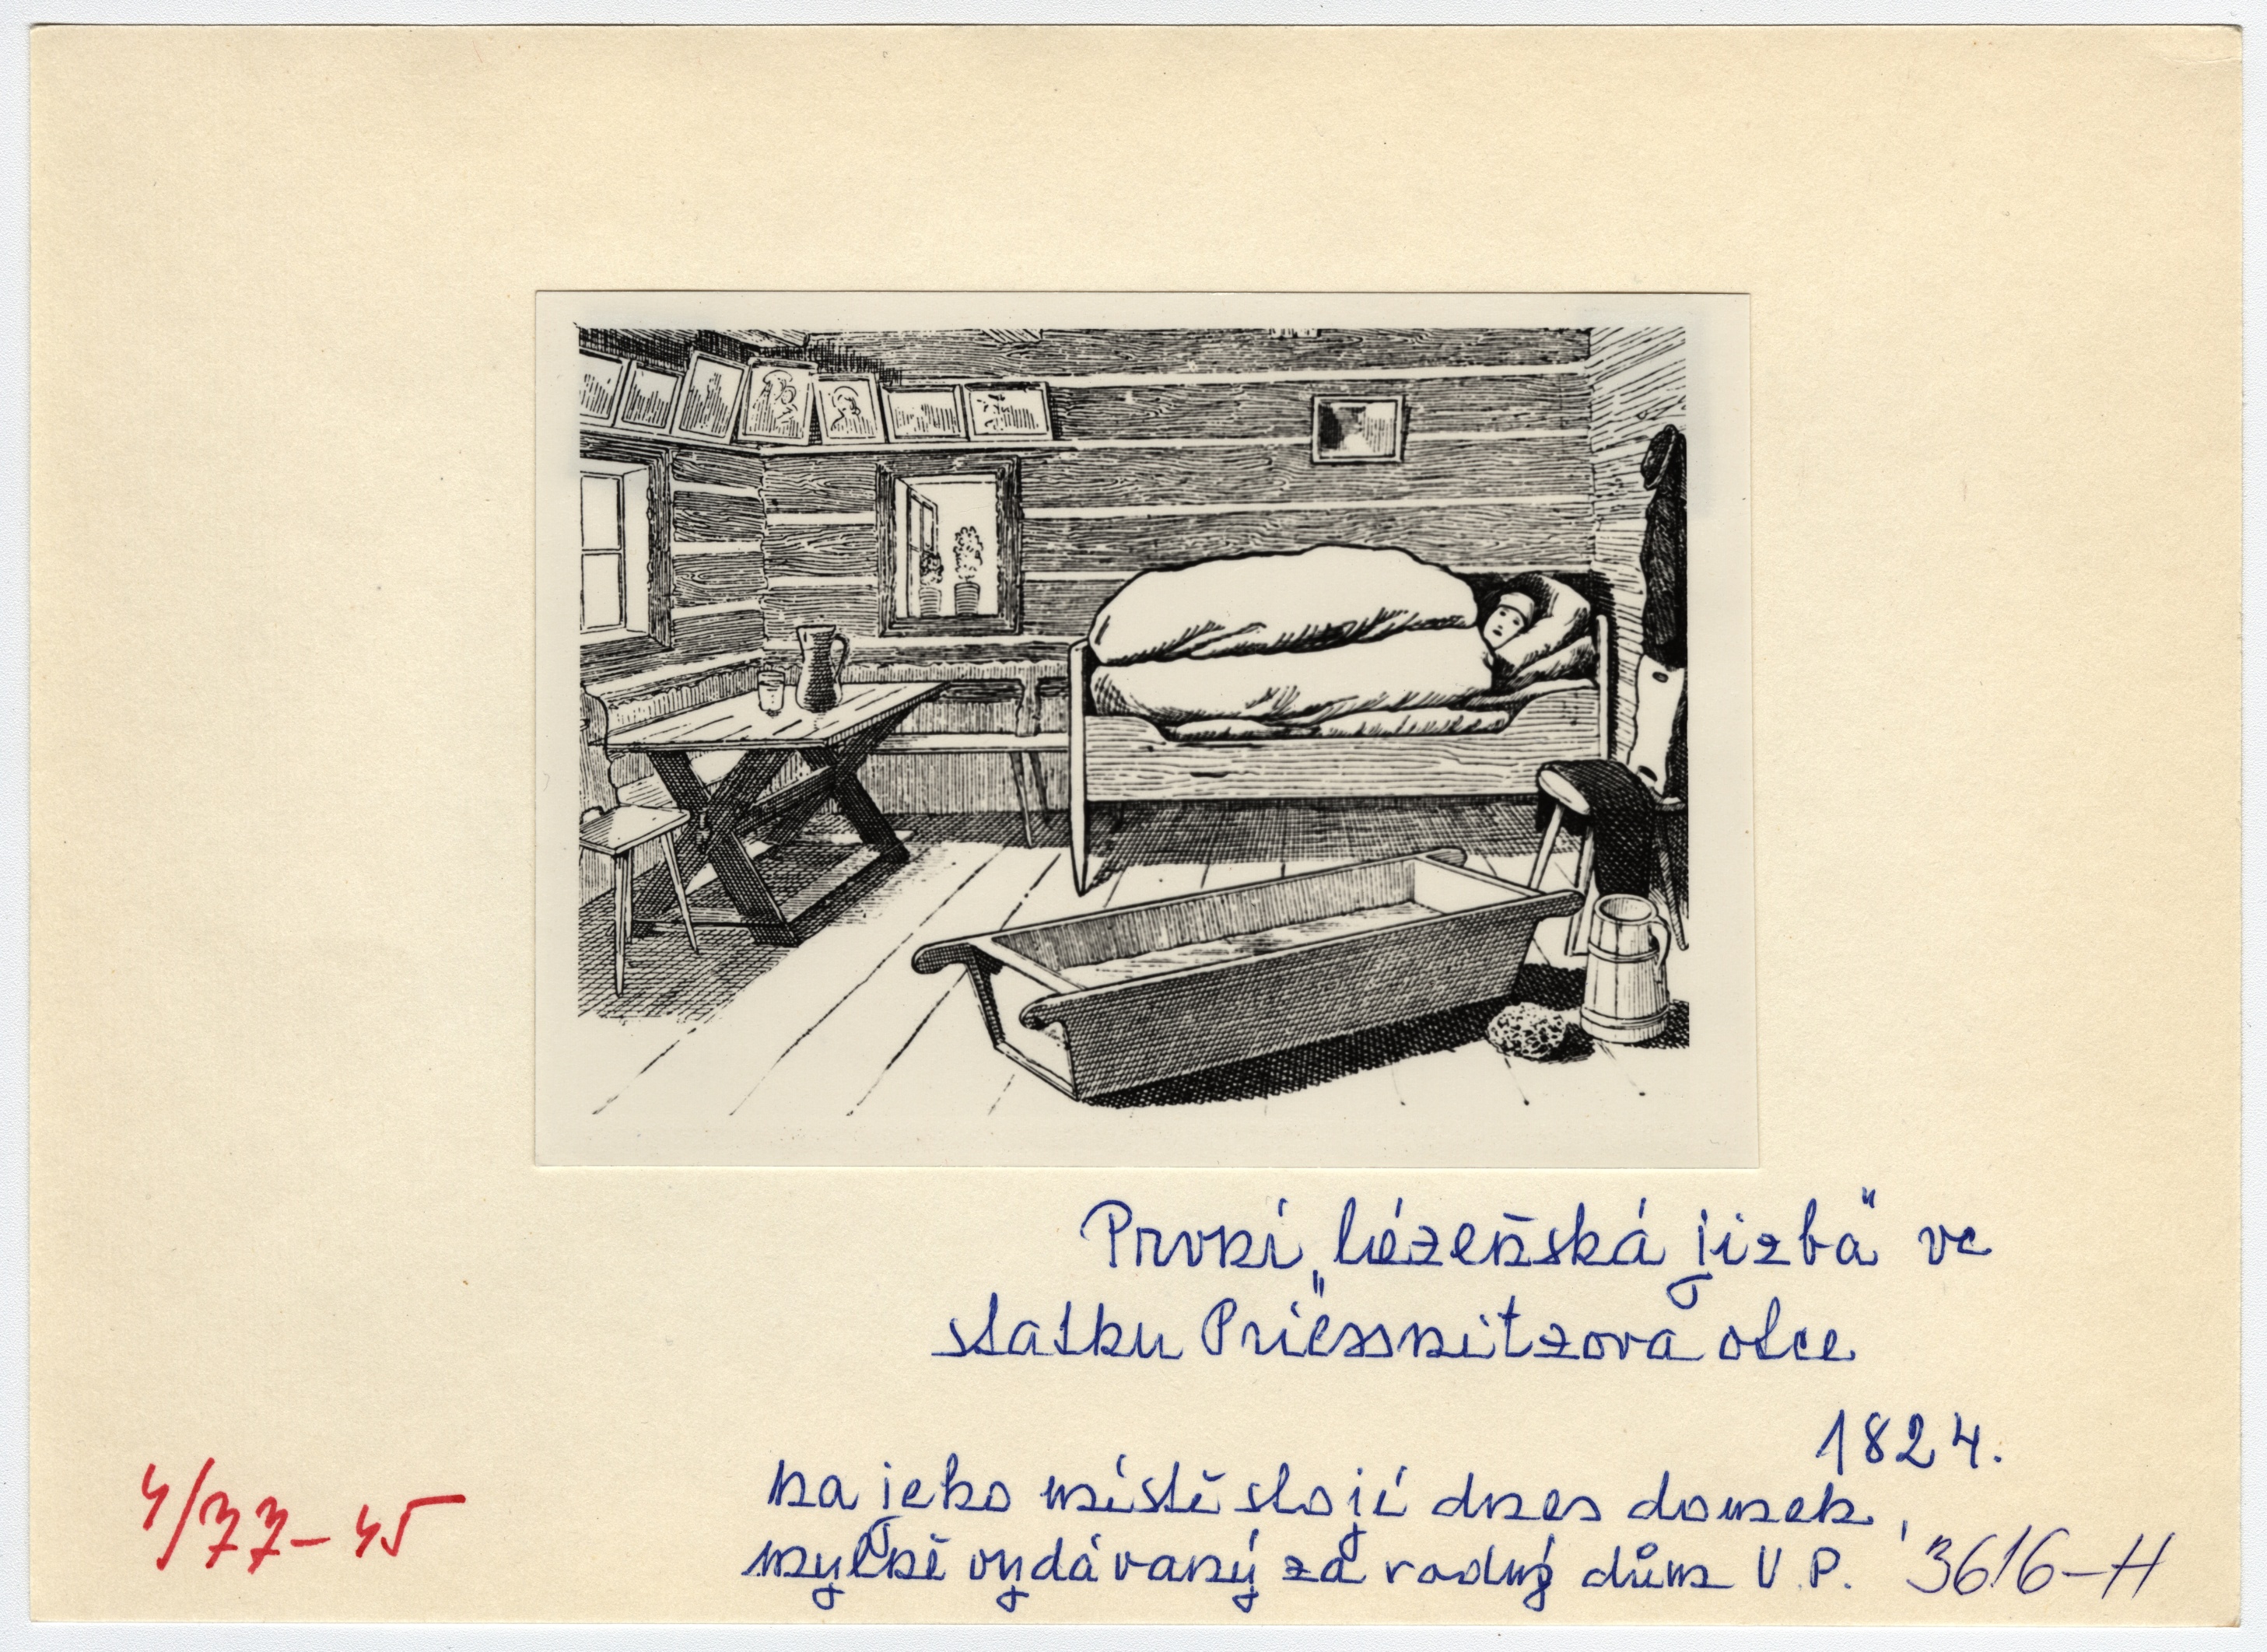 První „lázeňská jizba" ve
statku Priessnitzova otce
1824.
na jeho místě stojí dnes domek,
mylně vydávaný za rodný dům V. P.
3616-H
4/77-45